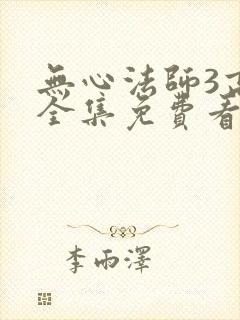 無心法師3
全集免費看
李雨澤